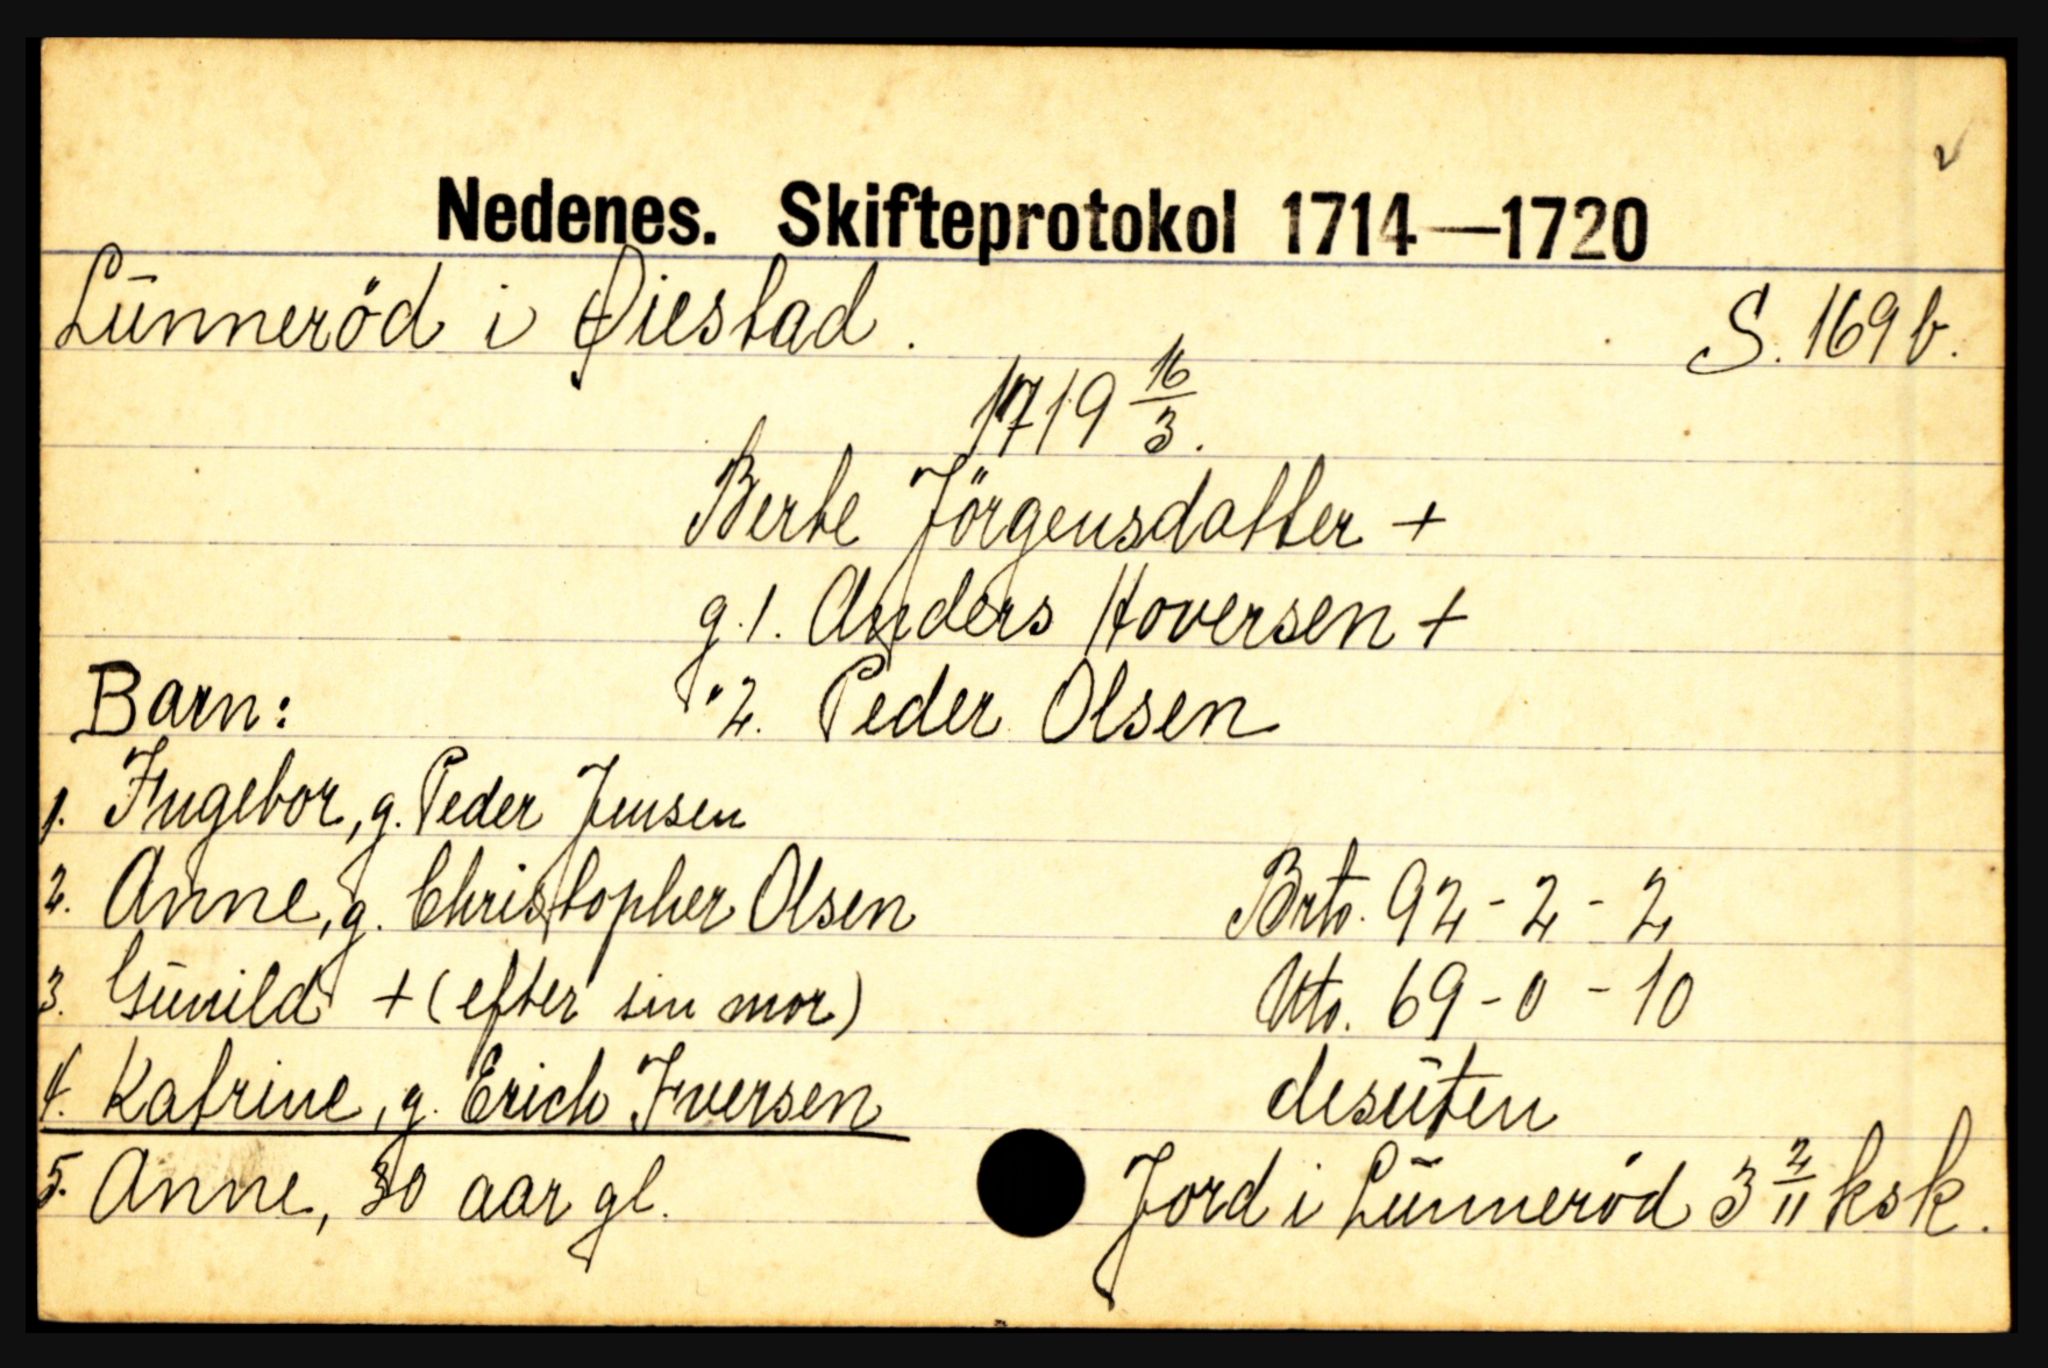 Nedenes. Skifteprotokol 1714—1720
Lünneröd i Øiestad. S. 169 b.
1719 16/3.
Berte Jörgensdatter +
g. 1. Anders Hoversen +
" 2. Peder Olsen
Barn:
1. Ingebor, g. Peder Jensen
2. Anne, g. Christopher Olsen Brto. 92-2-2
3. Günild + (efter sin mor) Nto. 69-0-10
4. Katrine, g. Erich Iversen desüten
5. Anne, 30 aar gl. Jord i Lünneröd 3 2/11 ksk.